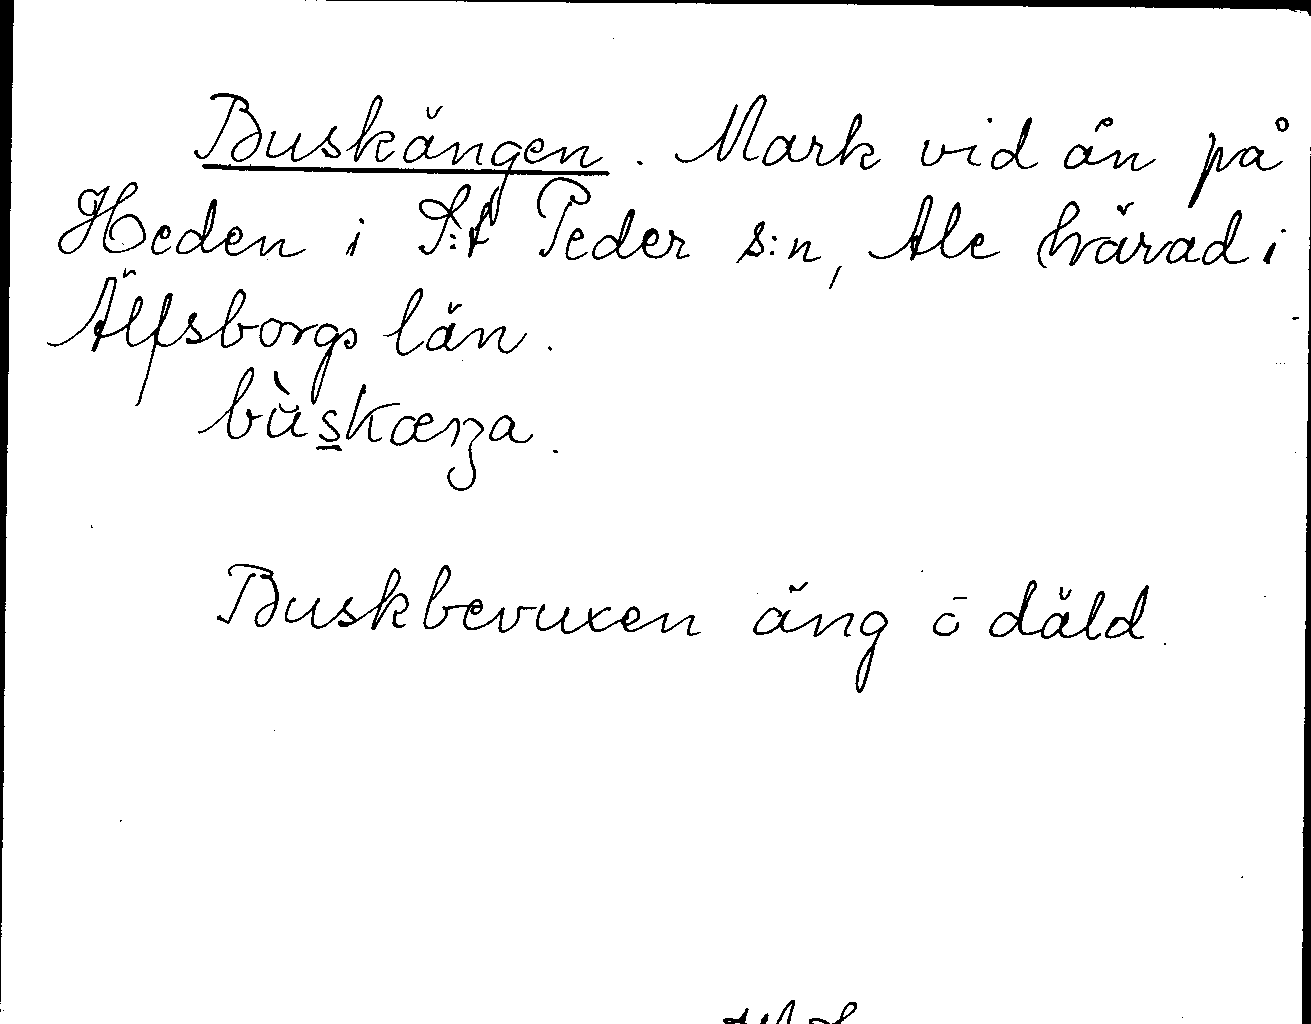 Buskängen. Mark vid ån på
Heden i S:t Peder s:n, Ale härad i
Älfsborgs län.
bùskæŋa.
Buskbevuxen äng o däld.